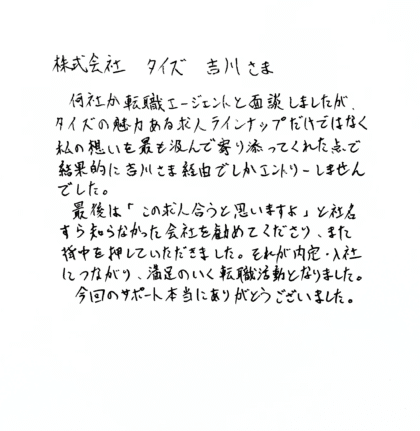 株式会社 タイズ 吉川さま
何社か転職エージェントと面談しましたが、
タイズの魅力ある求人ラインナップだけではなく
私の想いを最も汲んで寄り添ってくれた点で
結果的に吉川さま経由でしかエントリーしません
でした。
最後は「この求人合うと思いますよ」と社名
すら知らなかった会社を勧めてくださり、また
背中を押していただきました。それが内定・入社
につながり、満足のいく転職活動となりました。
今回のサポート本当にありがとうございました。